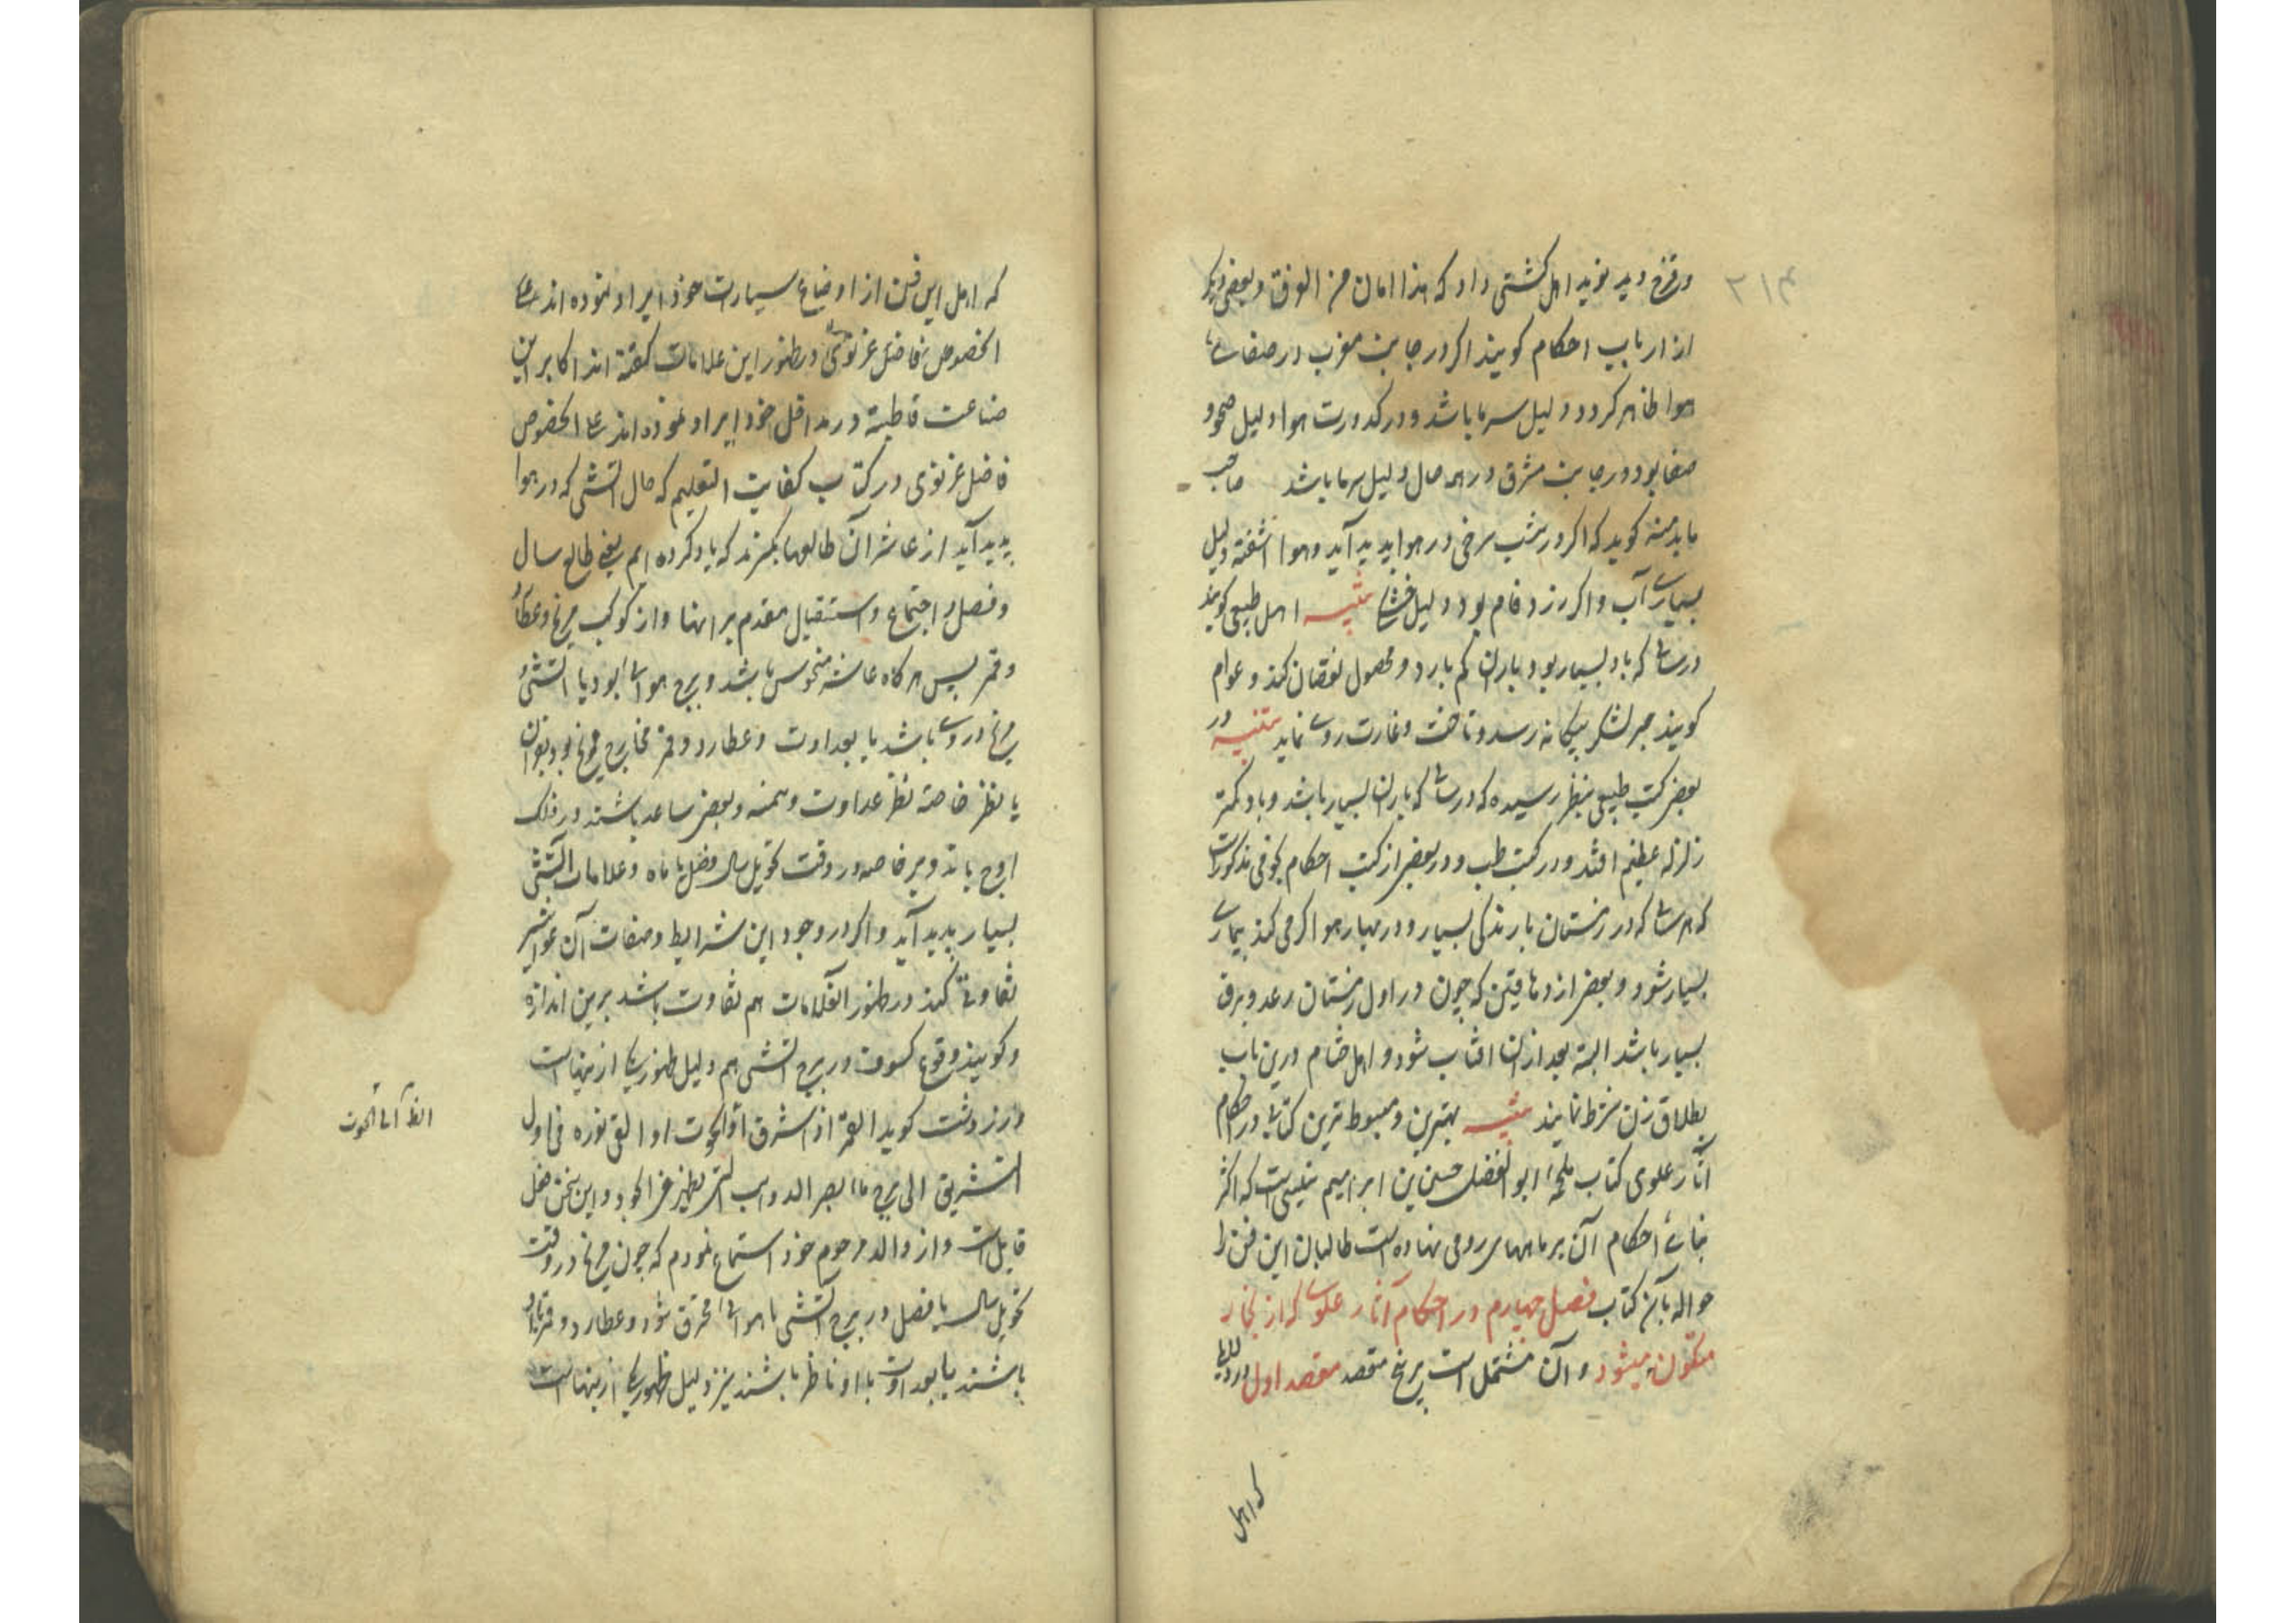 ۲۱۴
وقزح دید نوید اهل کشتی داد که هذا امان من الغرق و بعضی دیگر
از ارباب احکام کویند اکر در جانب مغرب در صفای
هوا ظاهر کردد دلیل سرما باشد و در کدورت هوا دلیل صحو و
صفا بود و در جانب مشرق در همه حال دلیل سرما باشد صاحب
ما بدمنه کوید که اکر در شب سرخی در هوا پدید آید و هوا آشفته دلیل
بسیاری آب و اکر زرد فام بود دلیل خشکی تنبیه اهل طبیعی کویند
در سالی که باد بسیار بود باران کم بارد و محصول نقصان کند و عوام
کویند خبر لشکر بیکانه رسد و تاخت و غارت روی نماید تنبیه در
بعضی کتب طبیعی بنظر رسیده که در سالی که باران بسیار باشد و باد کمتر
زلزله عظیم افتد و در کتب طب و در بعضی از کتب احکام کوفی مذکورست
که هر سالی که در زمستان بارندکی بسیار و در بهار هوا کرمی کند بیماری
بسیار شود و بعضی از دهاقین که چون در اول زمستان رعد و برق
بسیار باشد البته بعد از آن افتاب شود و اهل شام درین باب
بطلاق زن شرط نمایند تنبیه بهترین و مبسوط ترین کتابی در احکام
آثار علوی کتاب ملحمه ابو الفضل حسین بن ابراهیم تفلیسی است که اکثر
بنای احکام آن بر ماههای رومی نهاده است طالبان این فن را
حواله بآن کتاب فصل چهارم در احکام آثار علوی که از بخار
متکون میشود و آن مشتمل است بر پنج مقصد مقصد اول
که اهل
که اهل این فن از اوضاع سیارات خود ایراد نموده اند علی
الخصوص فاضل غزنوی در ظهور این علامات کفته اند اکابر این
صناعت قاطبة در مداخل خود ایراد نموده اند علی الخصوص
فاضل غزنوی در کتاب کفایت التعلیم که حال آتشی که در هوا
پدید آید از عاشر آن طالعها بکیرند که یاد کرده ایم یعنی طالع سال
و فصل و اجتماع و استقبال مقدم بر اینها و از کوکب مریخ و عطارد
و قمر پس هر کاه عاشر منحوس باشد و برج هوائی بود یا آتشی و
مریخ در وی باشد یا بعداوت و عطارد و قمر
یا بنظر خاصه نظر عداوت و بعضی ساعد باشند در فلک
اوج یا تدویر خاصه در وقت تحویل سال و فصل یا ماه و علامات آتشی
بسیار پدید آید و اکر در وجود این شرایط و صفات آن عواشر
تفاوتی کند در ظهور آنعلامات هم تفاوت باشد برین اندازه
و کویند وقوع کسوف در برج آتشی هم دلیل ظهور یکی ازینهاست
و زردشت کوید القمر اذا اشرق او الحوت او القی نوره فی اول
التشریق الی برج ما ابصر الدواب التی تظهر فی الجو و این سخن نقل
قابل است و از والد مرحوم خود استماع نمودم که چون مریخ در وقت
تحویل سال یا فصل در برج آتشی یا هوائی محترق شود و عطارد و قمر با او
باشند یا بعداوت با او ناظر باشند نیز دلیل ظهور یکی ازینهاست